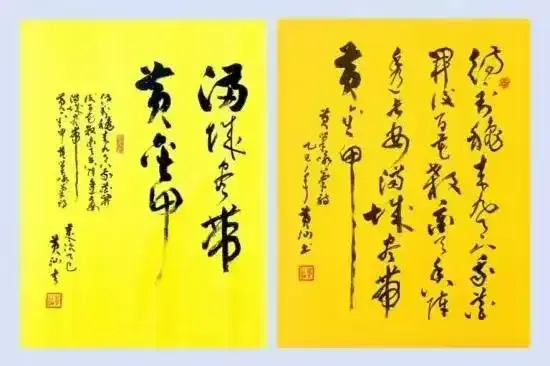 满城尽带
黄金甲
待到秋来九月八我花开
后百花杀冲天香阵透长安
满城尽带
黄金甲 黄巢咏菊诗
岁次乙巳
待到秋来九月八我花
开后百花杀冲天香阵
透长安满城尽带
黄金甲
黄巢咏菊诗